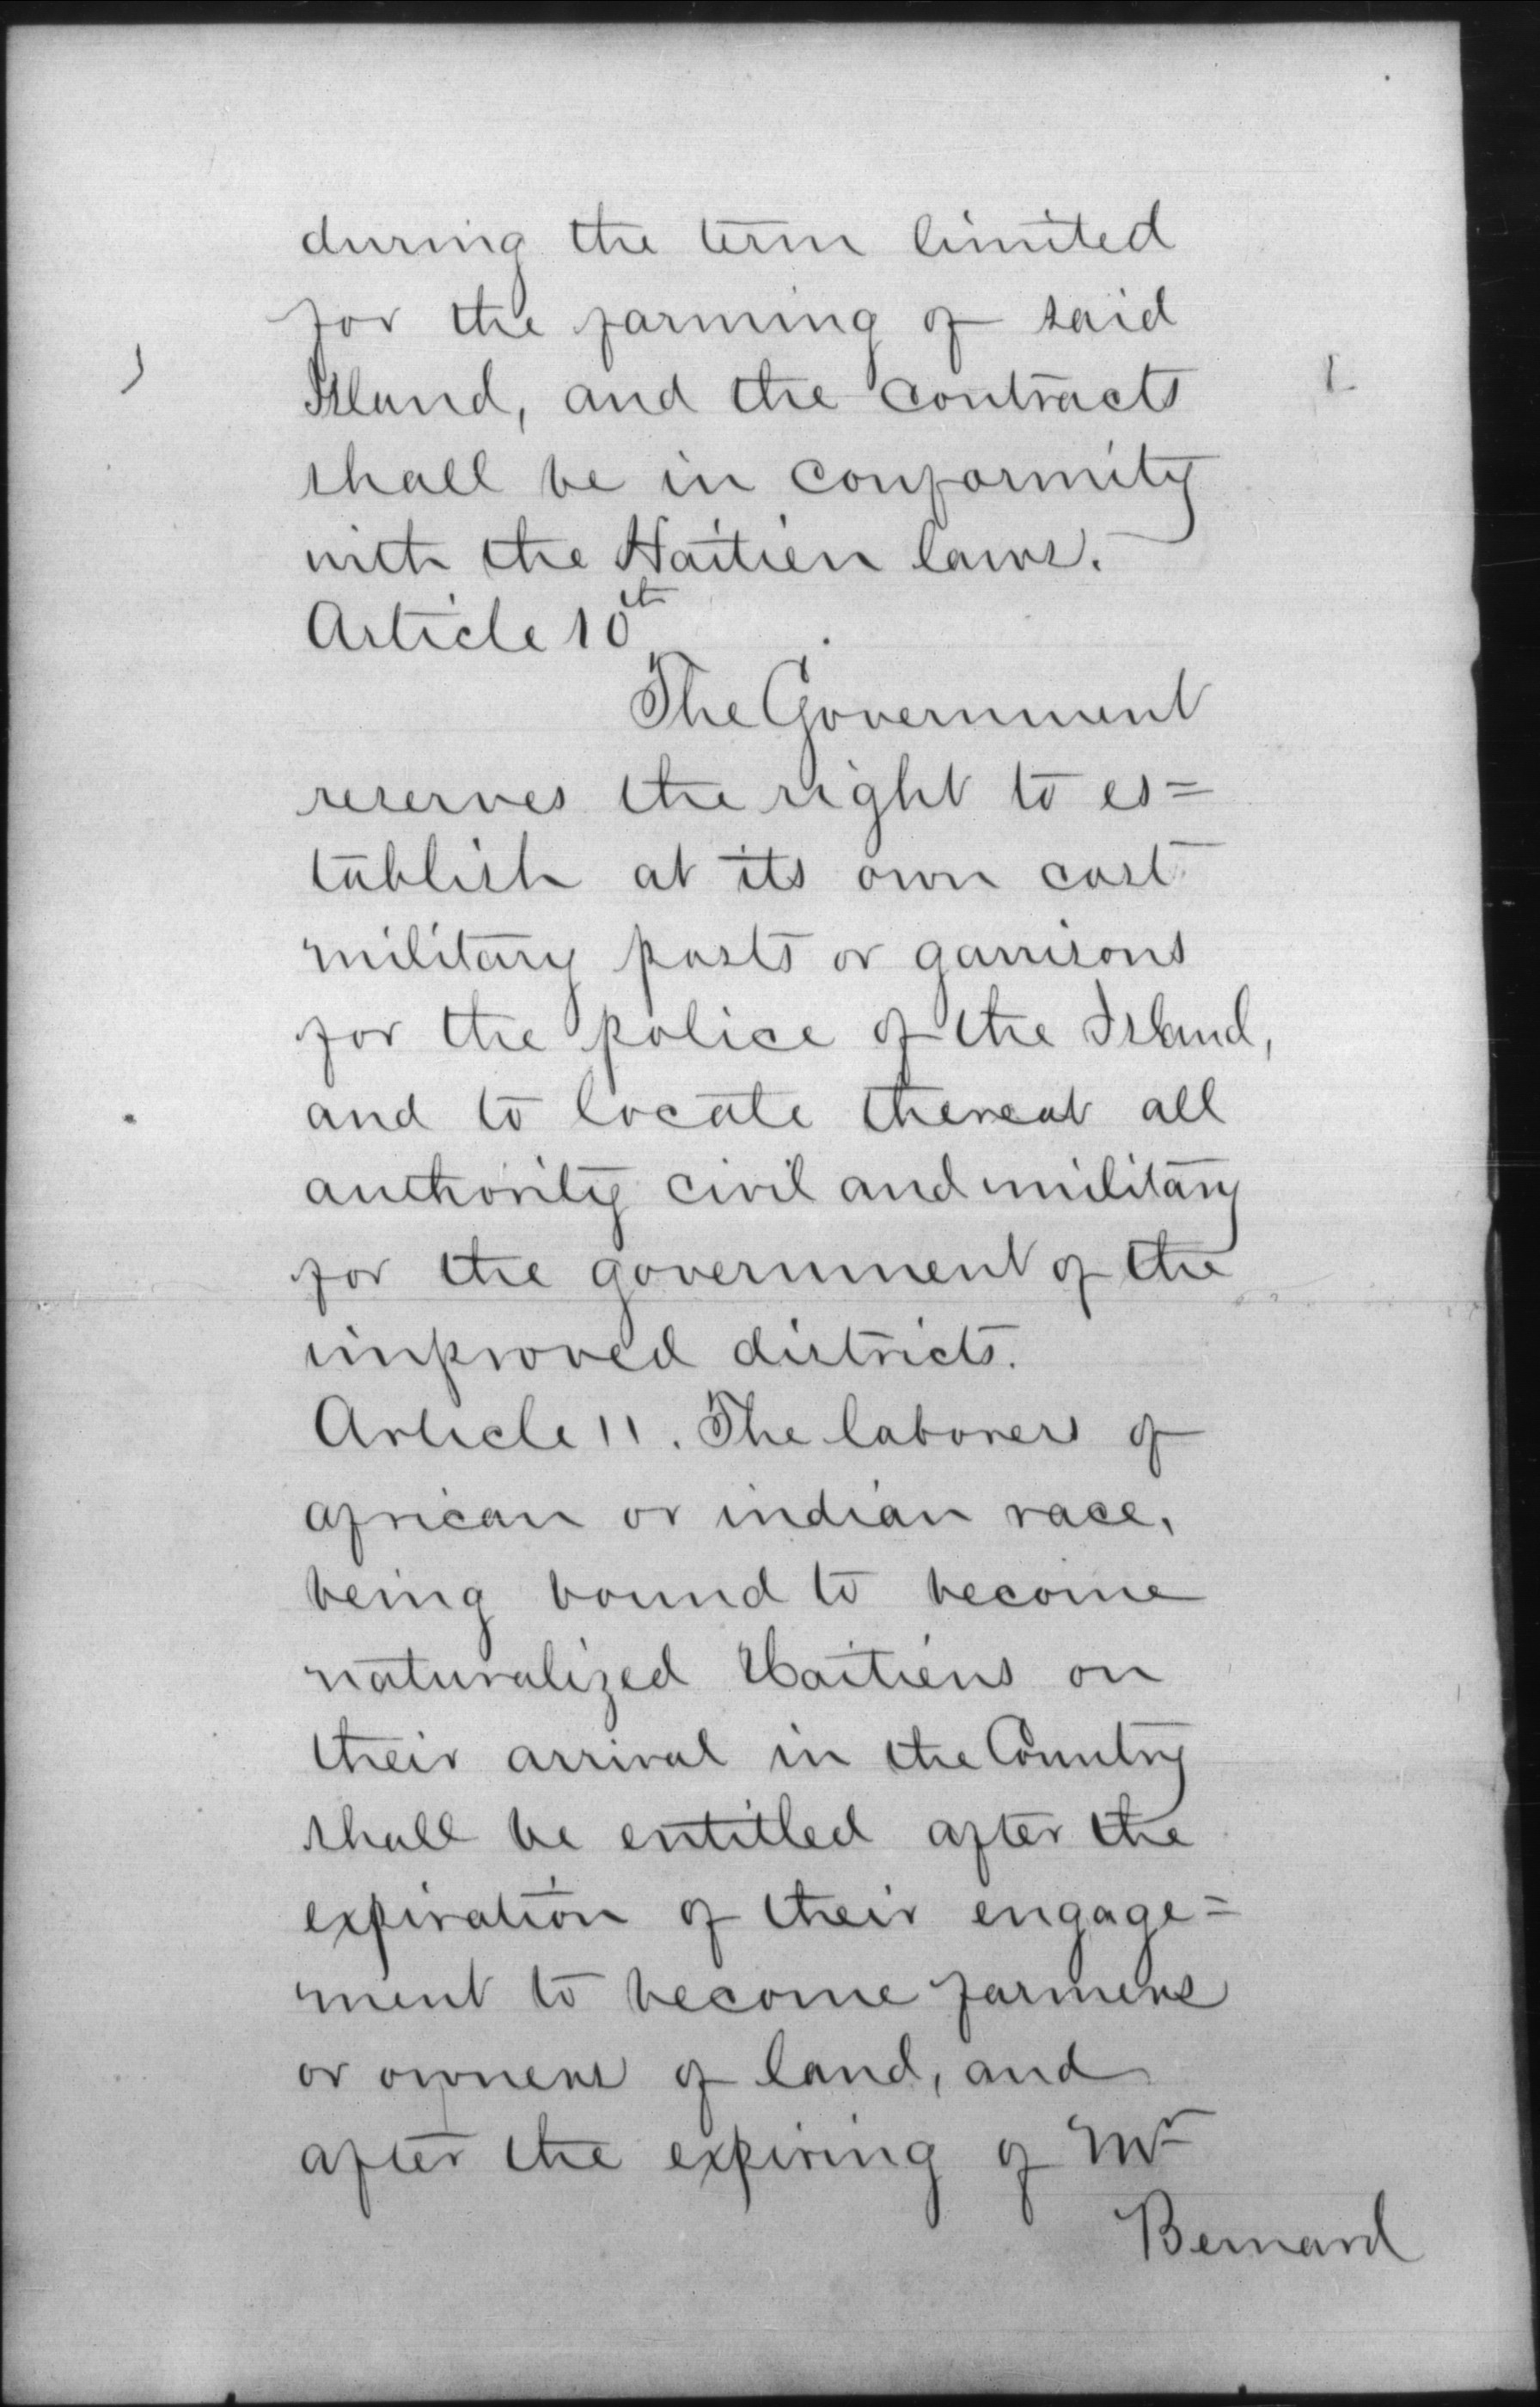 during the term limited
for the farming of said
Island, and the contracts
shall be in conformity
with the Haitien laws.
Article 10th
The Government
reserves the right to es=
tablish at its own cost
military posts or garrisons
for the police of the Island,
and to locate thereat all
authority civil and military
for the government of the
improved districts.
Article 11. The laborers of
african or indian race,
being bound to become
naturalized Haitiens on
their arrival in the Country
shall be entitled after the
expiration of their engage=
ment to become farmers
or owners of land, and
after the expiring of Mr
Bernard